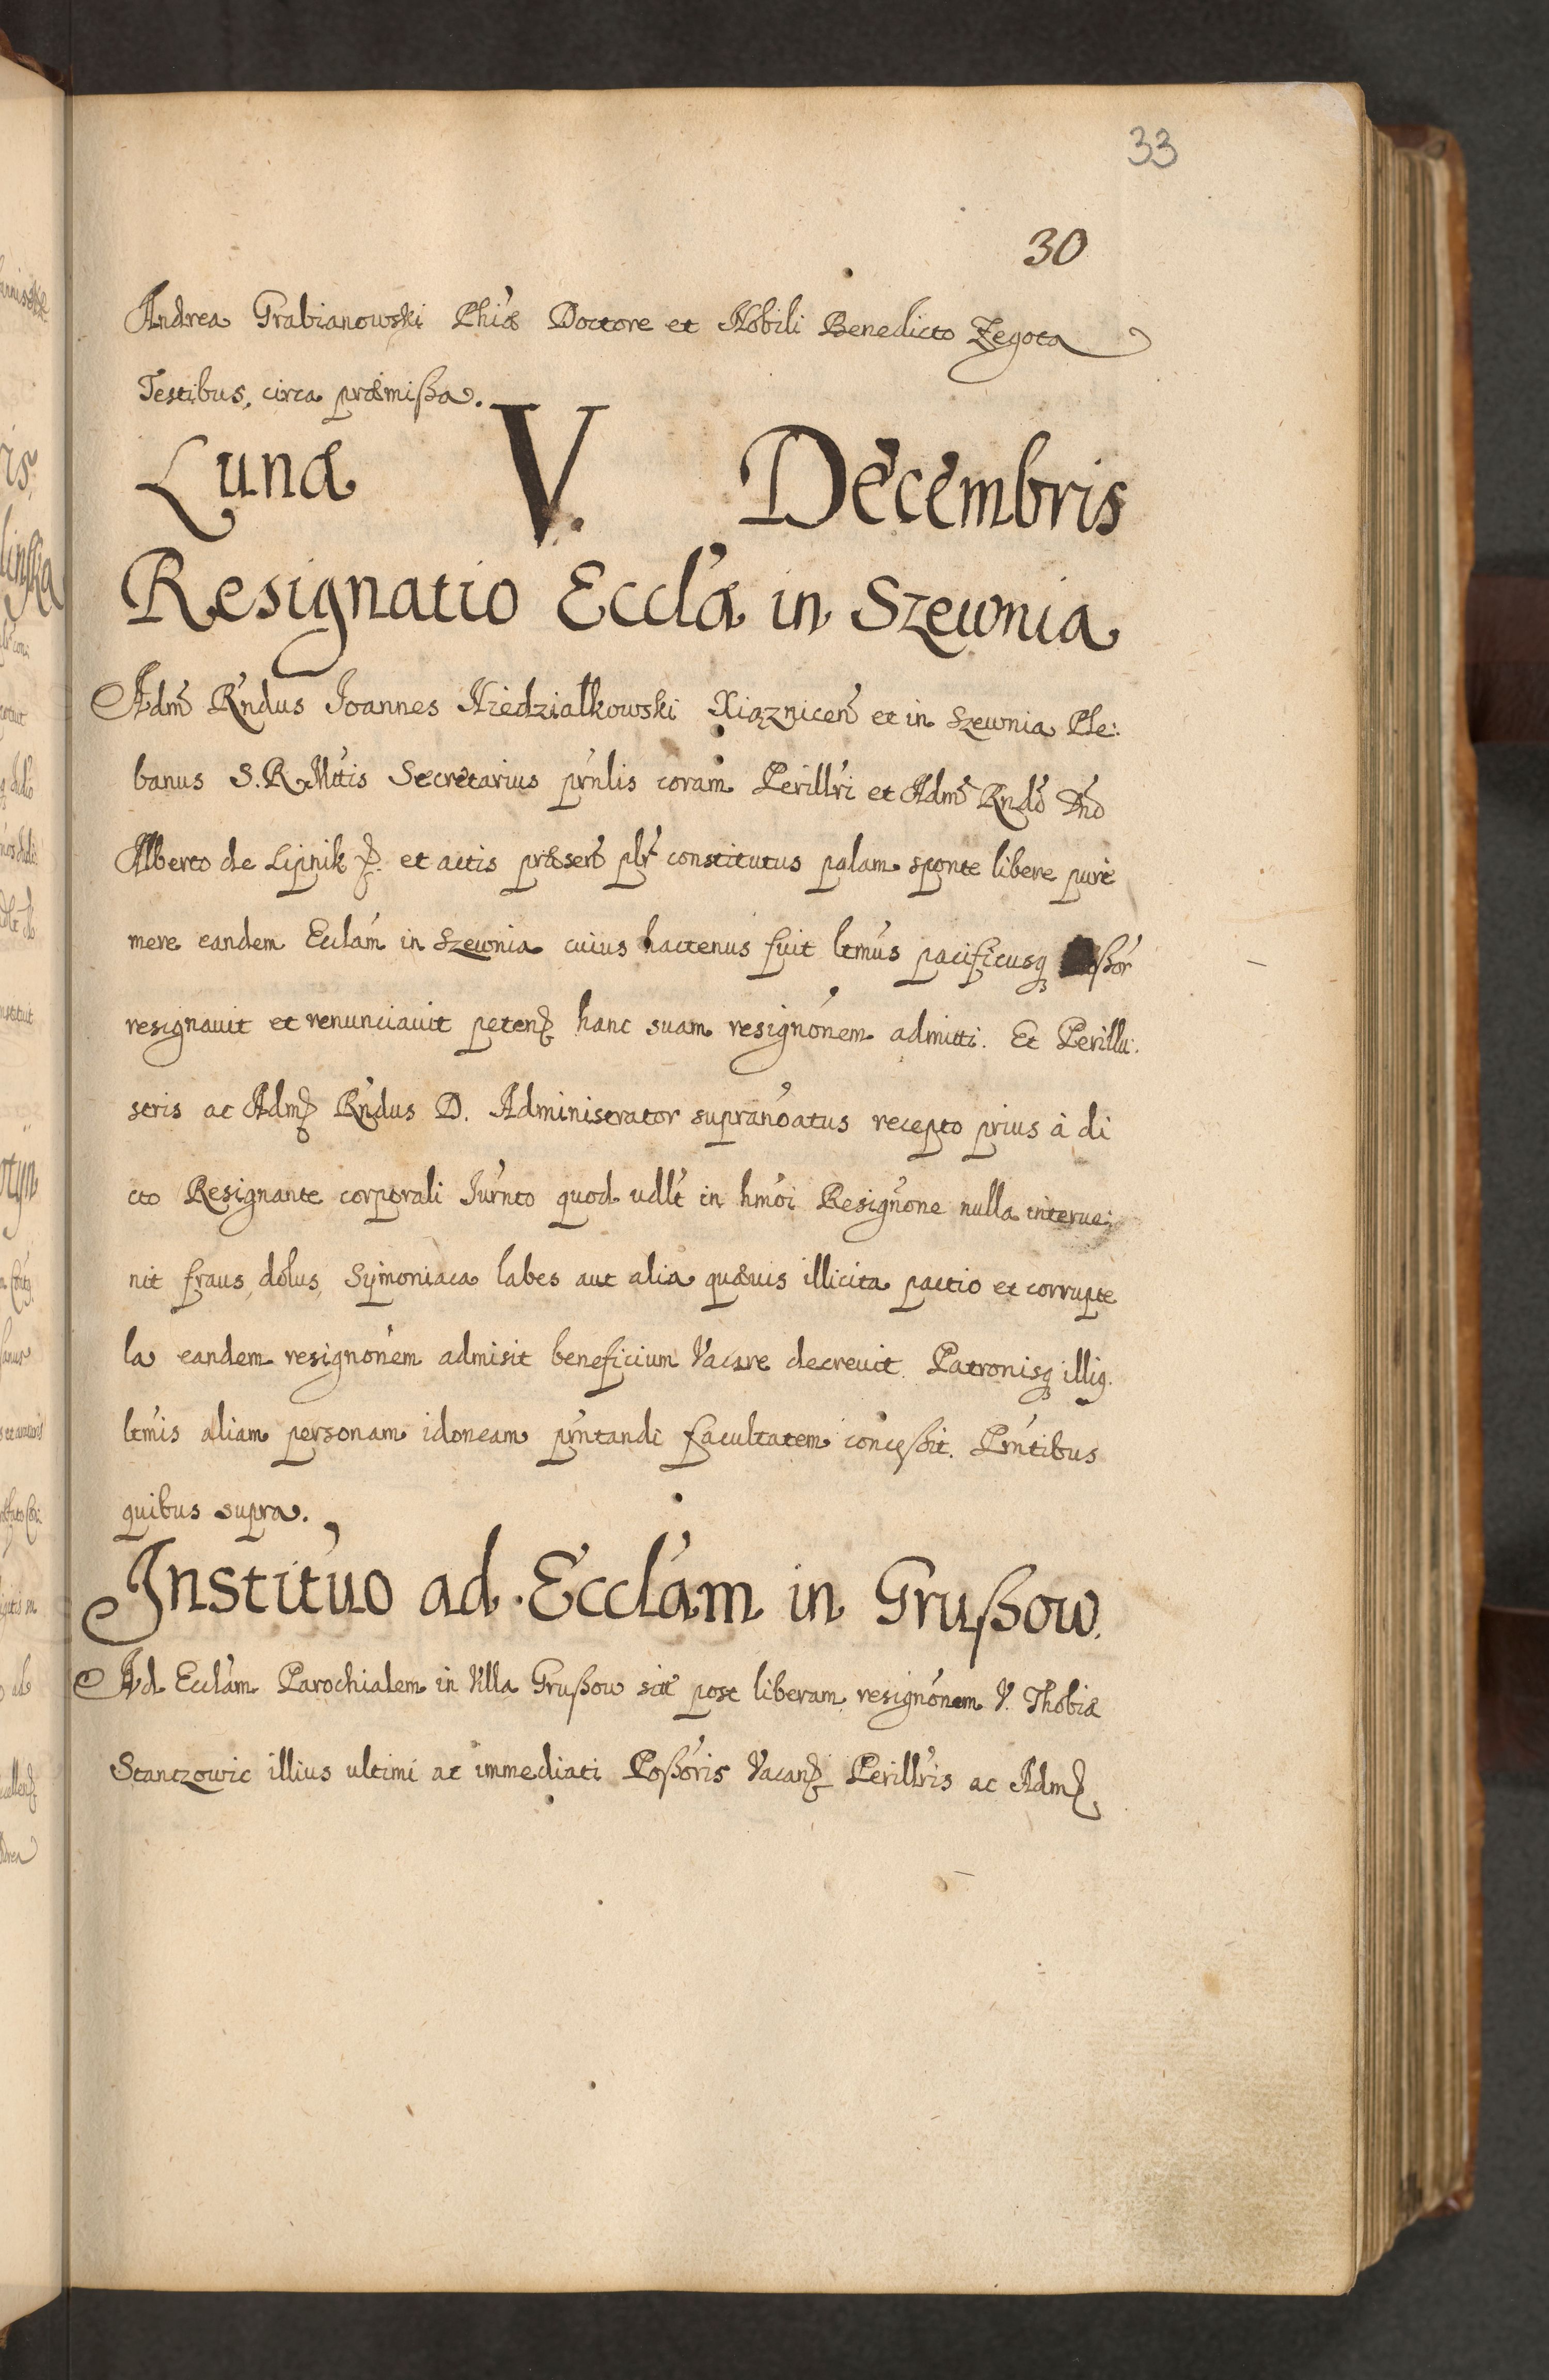 33
30
Andrea Grabianowski Phiæ Doctore et Nobili Benedicto Zegota
Testibus, circa præmißa.
Lunæ V. Decembris
Resignatio Eccl'æ in Szewnia
Adm Rndus Joannes Niedzialkowski Xiąznicen et in Szewnia Ple:
banus S. R. Mttis Secretarius prnlis coram Perillri et Adm Rndo Dno
Alberto de Lipnik et actis præsen plr constitutus palam sponte libere pure
mere eandem Ecclam in Szewnia cuius hactenus fuit ltmus pacificusq ßor
resignavit et renunciavit peten hanc suam resignonem admitti. Et Perillu:
stris ac Adm Rndus D. Administrator supranoatus recepto prius à di
cto Resignante corporali Iurnto quod vdlt in hmoi Resignone nulla interve:
nit fraus, dolus, Symoniaca labes aut alia quævis illicita pactio et corrupte
la eandem resignonem admisit beneficium Vacare decrevit. Patronisq illig.
ltmis aliam personam idoneam prntandi facultatem conceßit. Prntibus
quibus supra.
Institutio ad Ecclam in Grußow.
Ad Ecclam Parochialem in Villa Grußow sit post liberam resignonem V. Thobiæ
Stantzowic illius ultimi ac immediati Poßoris Vacan Perillris ac Adm